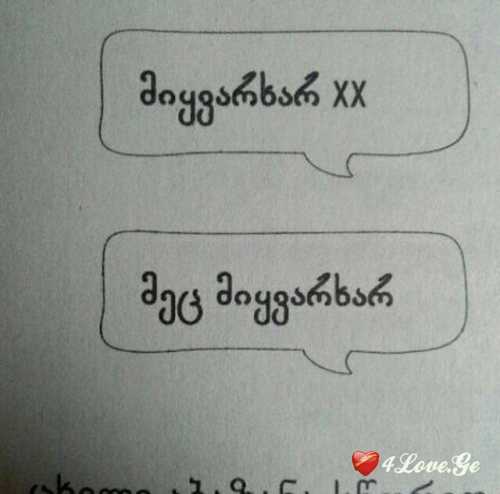 მიყვარხარ XX
მეც მიყვარხარ
4Love.Ge